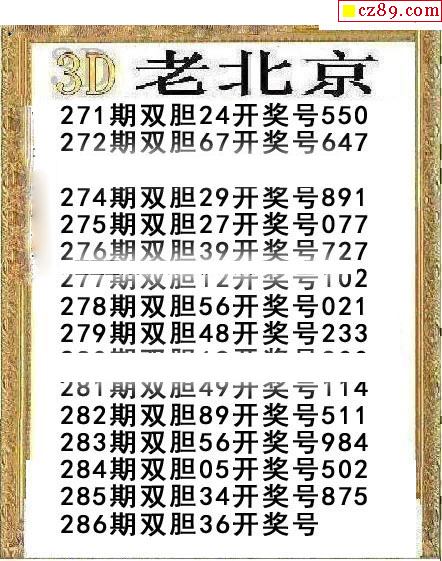 cz89.com
3D 老北京
271期双胆24开奖号550
272期双胆67开奖号647
274期双胆29开奖号891
275期双胆27开奖号077
276期双胆39开奖号727
277期双胆12开奖号102
278期双胆56开奖号021
279期双胆48开奖号233
281期双胆49开奖号114
282期双胆89开奖号511
283期双胆56开奖号984
284期双胆05开奖号502
285期双胆34开奖号875
286期双胆36开奖号